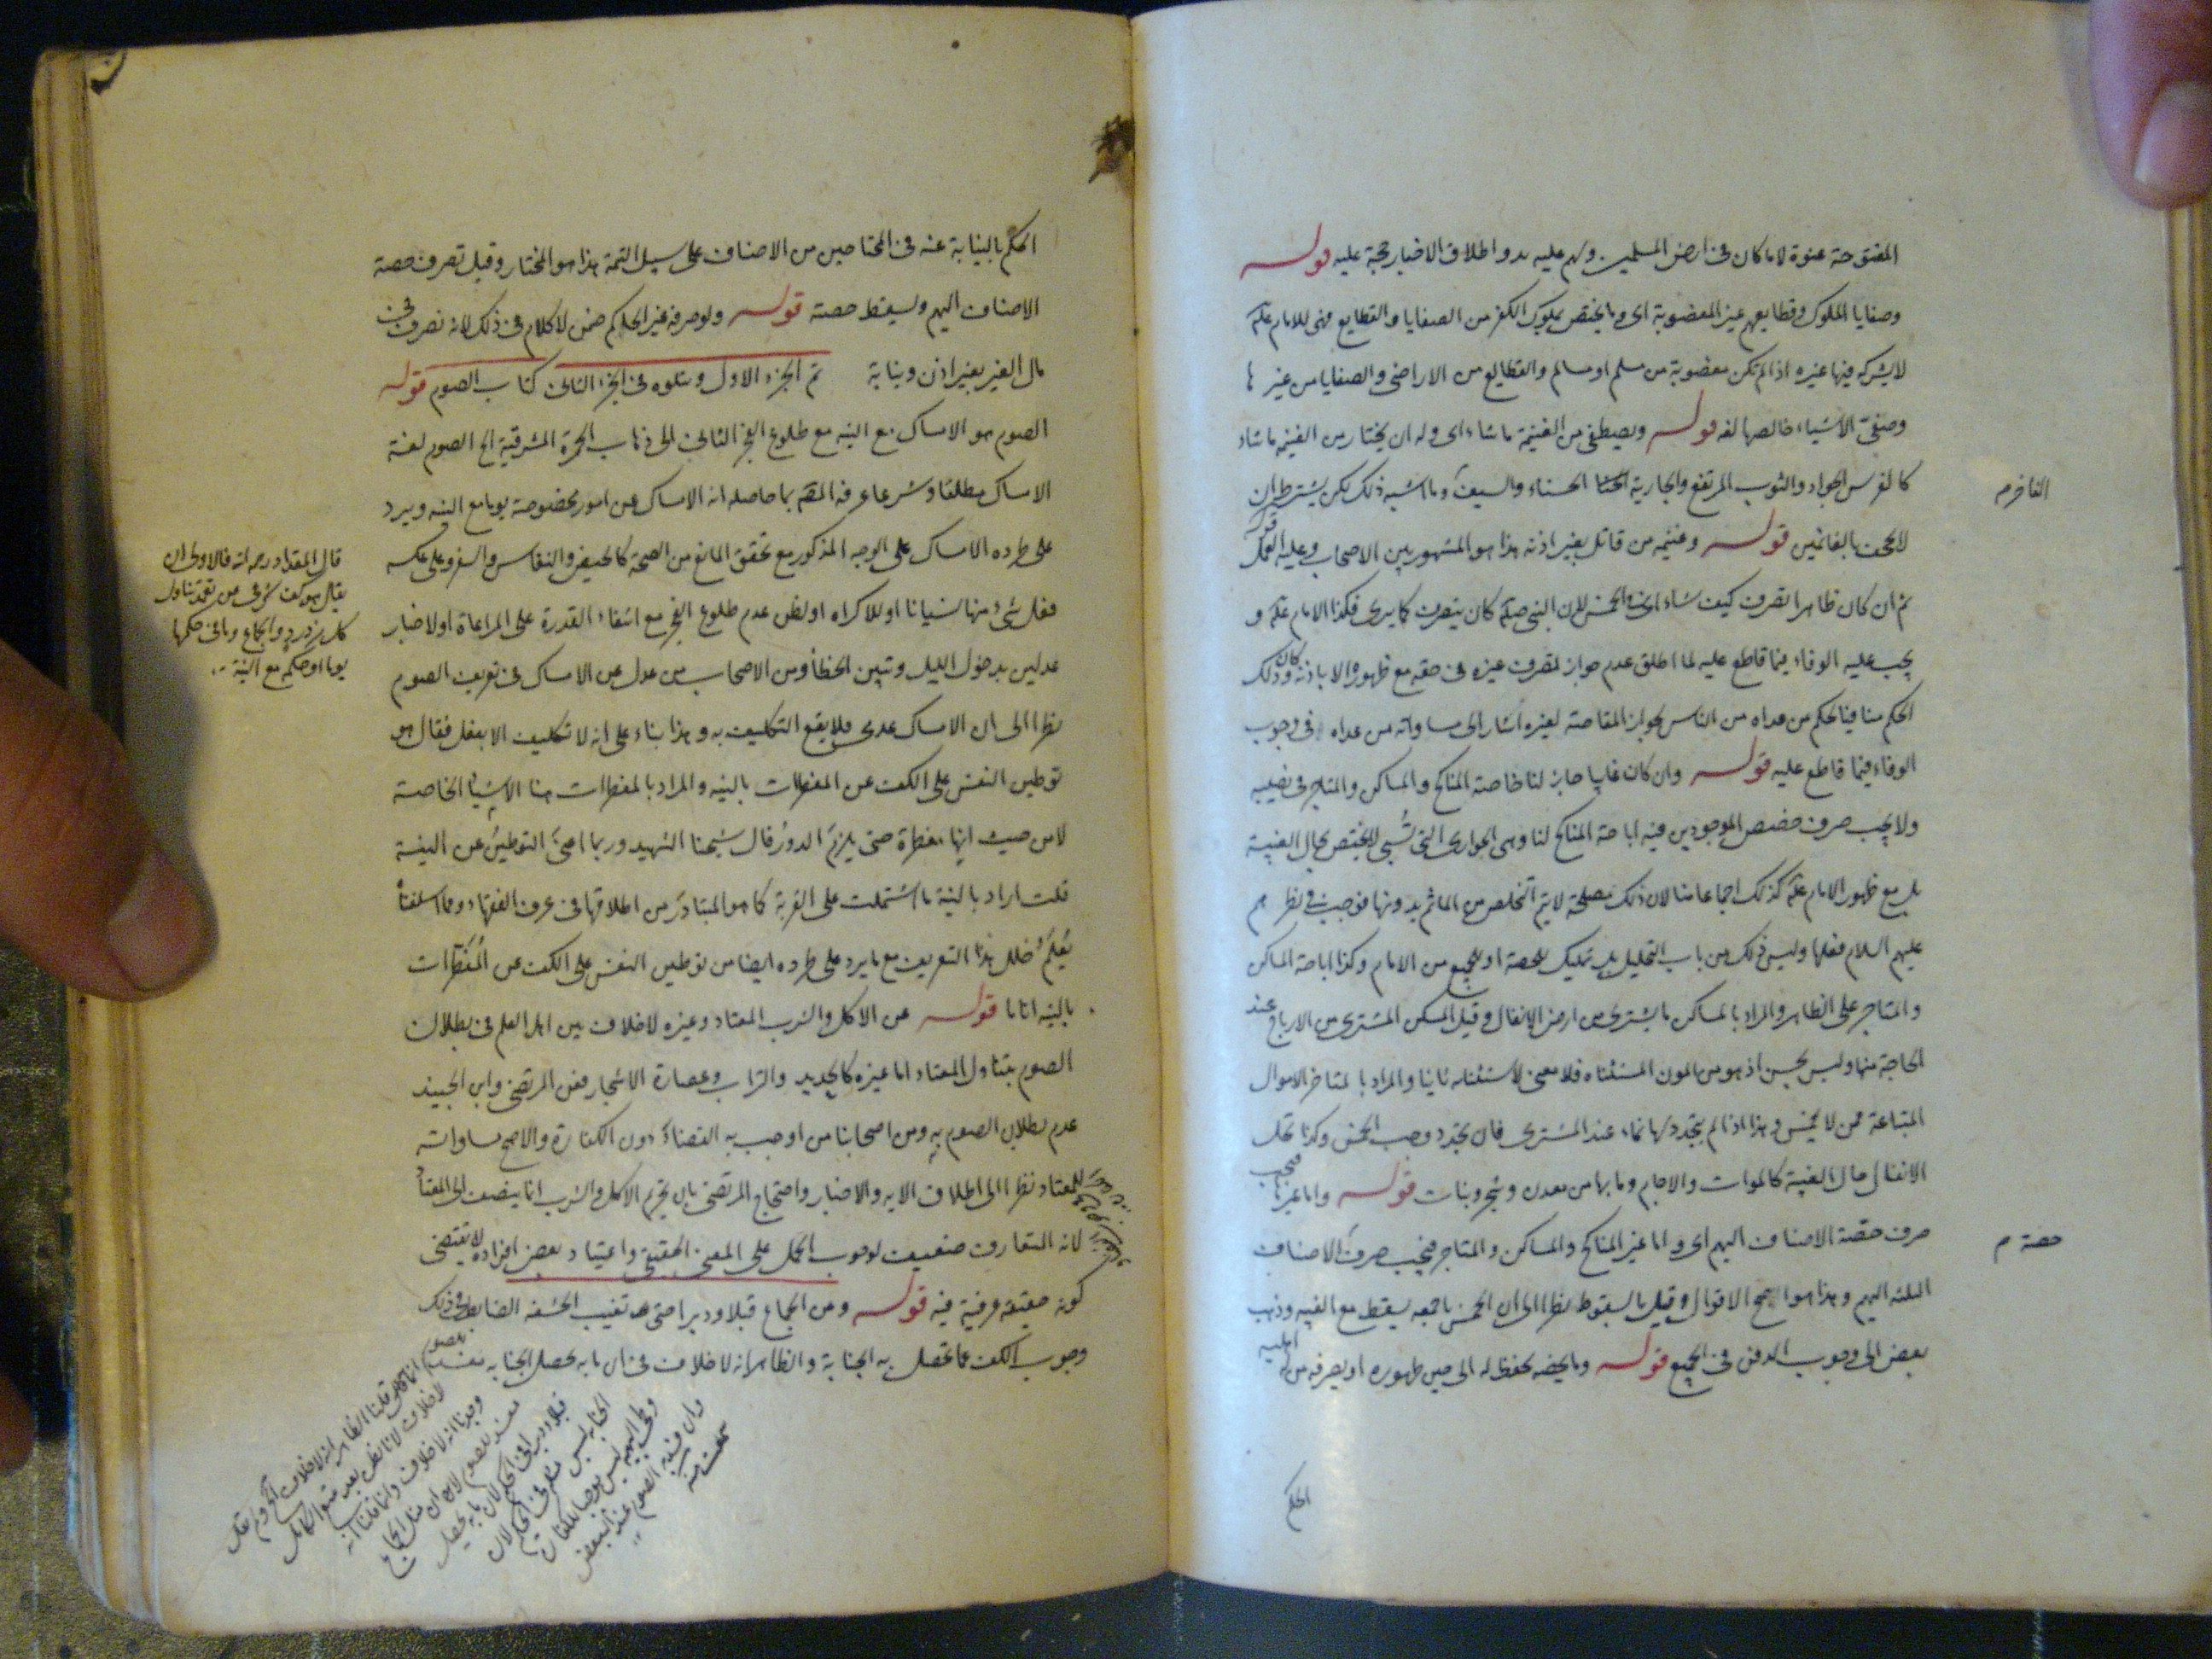 المفتوحة عنوة لا ما كان فى ارض المسلمين ولهم عليه يد و اطلاق الاخبار حجة عليه قوله
وصفايا الملوك وقطايعهم غير المغصوبة اى وما يختص بملوك الكفر من الصفايا والقطايع فهى للامام علم
لا يشركه فيها غيره اذا لم تكن مغصوبة من مسلم او مسالم والقطايع من الاراضى والصفايا من غيرها
وصفىّ الاشياء خالصها لغه قوله ويصطفى من الغنيمة ما شاء اى وله ان يختار من الغنيمه ما شاء
كالفرس الجواد والثوب المرتفع والجارية الحسناء والسيف وما اشبه ذلك لكن يشترط ان
الفاخر م
لا يجحف بالغانمين قوله وغنيمه من قاتل بغير اذنه هذا هو المشهور بين الاصحاب وعليه العمل قوله
ثم ان كان ظاهرا تصرف كيف شاء اى فى الخمس لان النبى صلم كان يتصرف كما يرى فكذا الامام علم و
يجب عليه الوفاء فيما قاطع عليه لما اطلق عدم جواز تصرف غيره فى حقه مع ظهوره الا باذنه وكان ذلك
الحكم منافيا لحكم من عداه من الناس بجواز المقاصة لغيره اشار الى مساواته من عداه فى وجوب
الوفاء فيما قاطع عليه قوله وان كان غايبا جاز لنا خاصة المناكح والمساكن والمتاجر فى نصيبه
ولا يجب صرف حصص الموجودين فيه اباحة المناكح لنا وهى الجوارى التى تُسبى لا يختص بحال الغيبة
بل مع ظهور الامام علم كذلك اجماعا منا لان ذلك مصلحة لا يتم التخلص من المآثم بدونها فوجب فى نظرهم
عليهم السلام فعلها وليس ذلك من باب التحليل بل تمليك للحصة او للجميع من الامام وكذا اباحة المساكن
والمتاجر على الظاهر والمراد بالمساكن ما يشترى من ارض الانفال وقيل المسكن المشترى من الارباح عند
الحاجة منها وليس بحسن اذ هو من المون المستثناه فلا معنى لاستثنائه ثانيا والمراد بالمتاجر الاموال
المبتاعة ممن لا يخمس وهذا اذا لم يتجدد لها نماء عند المشترى فان تجدد وجب الخمس وكذا تحل
الانفال حال الغيبة كالموات والاجام وما بها من معدن وشجر ونبات قوله واما غيرها فيجب
صرف حصّة الاصناف اليهم اى و اما غير المناكح والمساكن والمتاجر فيجب صرف الاصناف
حصة م
الثلثه اليهم وهذا هو اصح الاقوال وقيل بالسقوط نظرا الى ان الخمس باجمعه يسقط مع الغيبه وذهب
بعض الى وجوب الدفن فى الجميع قوله وما يخصه يحفظ له الى حين ظهوره او يصرفه من اليه
الحكم
الحكم بالنيابة عنه فى المحتاجين من الاصناف على سبيل التتمة هذا هو المختار وقيل تصرف حصة
الاصناف اليهم ويسقط حصته قوله ولو صرفه غير الحاكم ضمن لا كلام فى ذلك لانه تصرف فى
مال الغير بغير اذن ونيابة تم الجزء الاول ويتلوه فى الجزء الثانى كتاب الصوم قوله
الصوم هو الامساك مع النيه مع طلوع الفجر الثانى الى ذهاب الحمرة المشرقية الخ الصوم لغة
الامساك مطلقا وشرعا عرفه المصه بما حاصله انه الامساك عن امور مخصوصة يوما مع النيه ويرد
على طرده الامساك على الوجه المذكور مع تحقق المانع من الصحة كالحيض والنفاس والسفر وعلى عكسه
فعل شىء منها نسيانا او للاكراه او لظن عدم طلوع الفجر مع انتفاء القدرة على المراعاة او لاخبار
عدلين بدخول الليل وتبين الخطأ ومن الاصحاب من عدل عن الامساك فى تعريف الصوم
نظرا الى ان الامساك عدمى فلا يقع التكليف به وهذا بناء على انه لا تكليف الا بفعل فقال هو
توطين النفس على الكف عن المفطرات بالنيه والمراد بالمفطرات هنا الاشياء الخاصة
لا من حيث انها مفطرة حتى يلزم الدور قال شيخنا الشهيد وربما اغنى التوطين عن النيه
قلت اراد بالنية ما اشتملت على القربة كما هو المتبادر من اطلاقها فى عرف الفقهاء ومما اسلفناه
يُعلم خلل هذا التعريف مع ما يرد على طرده ايضا من توطين النفس على الكف عن المفطرات
بالنيه اناما قوله عن الاكل والشرب المعتاد وغيره لا خلاف بين اهل العلم فى بطلان
الصوم بتناول المعتاد اما غيره كالحديد والتراب وعصارة الاشجار فعن المرتضى وابن الجنيد
عدم بطلان الصوم به ومن اصحابنا من اوجب به القضاء دون الكفارة والاصح مساواته
للمعتاد نظرا الى اطلاق الايه والاخبار واحتجاج المرتضى بان تحريم الاكل والشرب انما ينصرف الى المعتاد
لانه المتعارف ضعيف لوجوب الحمل على المعنى الحقيقى واعتياد بعض افراده لا يقتضى
كونه حقيقة عرفية فيه قوله وعن الجماع قبلا ودبرا حتى تغيب الحشفه الضابط فى ذلك
وجوب الكف عما تحصل به الجنابة والظاهر انه لا خلاف فى ان ما به يحصل الجنابه مفسد للصوم
قال المقداد رحمه الله فالاولى ان
يقال هو كف شرعى عن تعمد تناول
كل مزدرد والجماع وما فى حكمها
يوما او حكمه مع النية ..